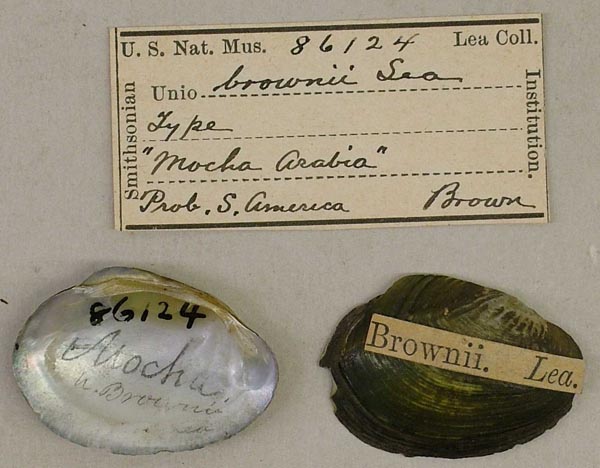 U. S. Nat. Mus. 86124 Lea Coll.
Smithsonian
Unio brownii Lea
Type
"Mocha Arabia"
Prob. S. America Brown
Institution.
86124
Mocha
U. Brownii
Lea
Brownii. Lea.